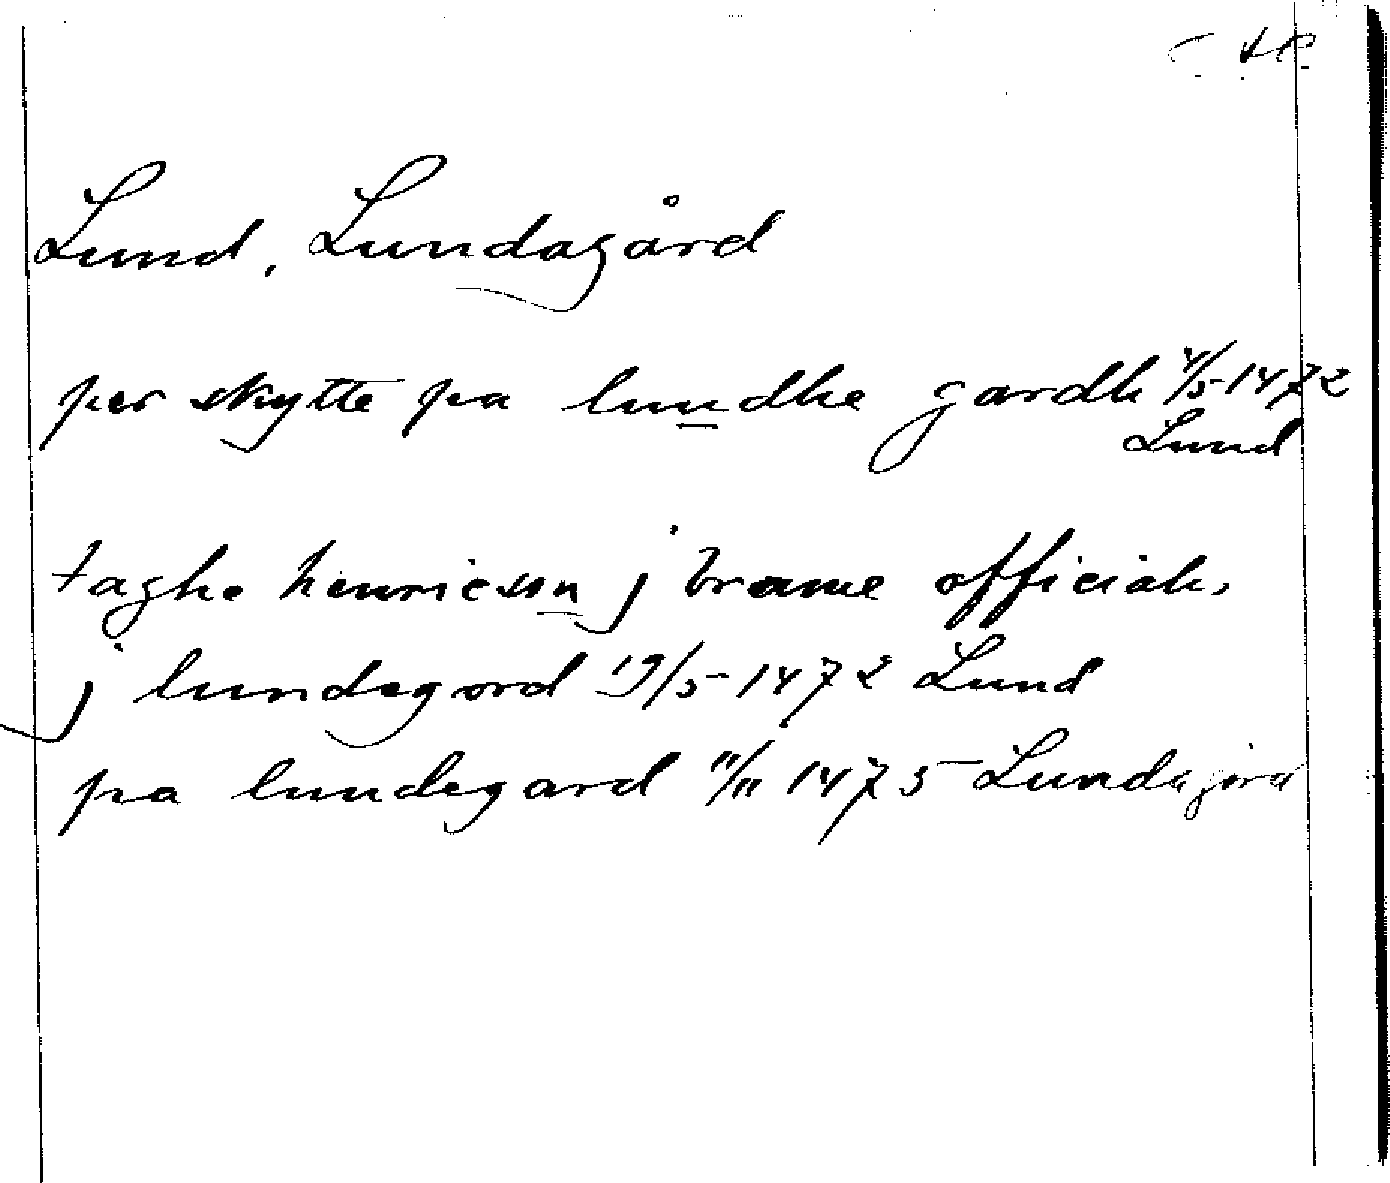 Lund, Lundagård
per skytte pa lundhe gardh 4/5 1472
Lund
taghe henricson j brame officialis
j lundegord 19/5 1472 Lund
pa lundegard 11/11 1475 Lundagård